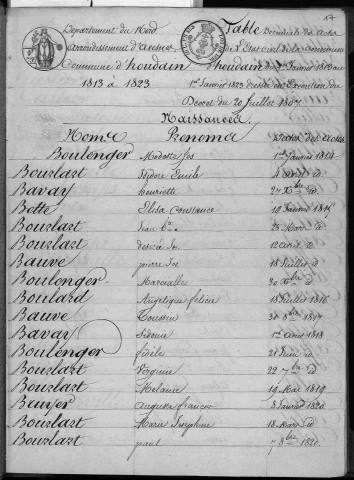 17
Département du Nord Table Décennale des actes
arrondissement d'avesnes de l'Etat civil de la commune
Commune d'houdain d'houdain du 1er Janvier 1813 au
1813 à 1823 1er Janvier 1823 dressée en Execution du
Decret du 20 Juillet 1807
Naissances
Noms Prenoms Dates des actes
Boulenger Modeste Jos 1er Janvier 1814
Bourlart Isidore Emile 4 avril id
Bavay henriette 24 Xbre id
Botte Elisa Constance 10 Janvier 1815
Bourlart Jean Bte 25 Mars id
Bourlart desirée Jos 12 avril id
Bauve pierre Jos 18 Juillet id
Boulenger Marcealles 30 Xbre id
Boulard Angelique felicie 18 Juillet 1816
Bauve Toussin 31 8bre 1817
Bavay Sidonie 1er Avril 1818
Boulenger fidele 21 Juin id
Bourlart Virginie 22 7bre id
Bourlart Melanie 10 Mai 1819
Bruyer auguste francois 8 Janvier 1820
Bourlart Marie Josephine 18 Mars id
Bourlart paul 7 8bre 1820